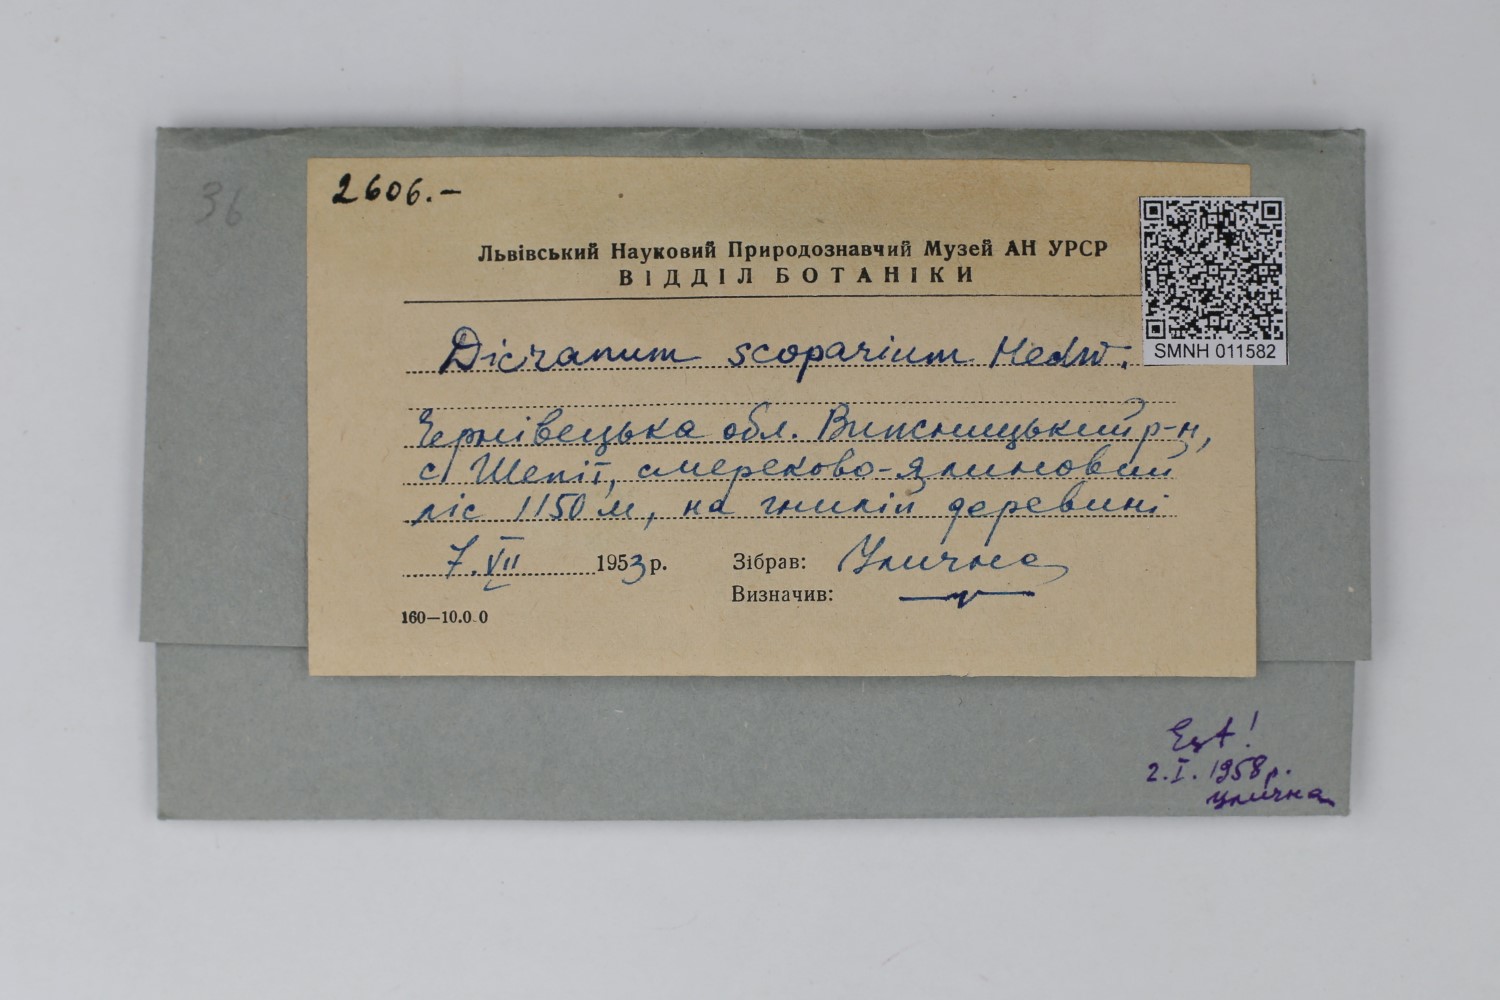 36
2606.–
Львівський Науковий Природознавчий Музей АН УРСР
ВІДДІЛ БОТАНІКИ
SMNH 011582
Dicranum scoparium Hedw.
Чернівецька обл. Вижницький р-н,
с Шепіт, смереково-ялиновий
ліс 1150 м, на гнилій деревині
7.VII 1953 р. Зібрав: Улична
Визначив: —"—
160—10.0 0
Est!
2.I.1958р.
Улична